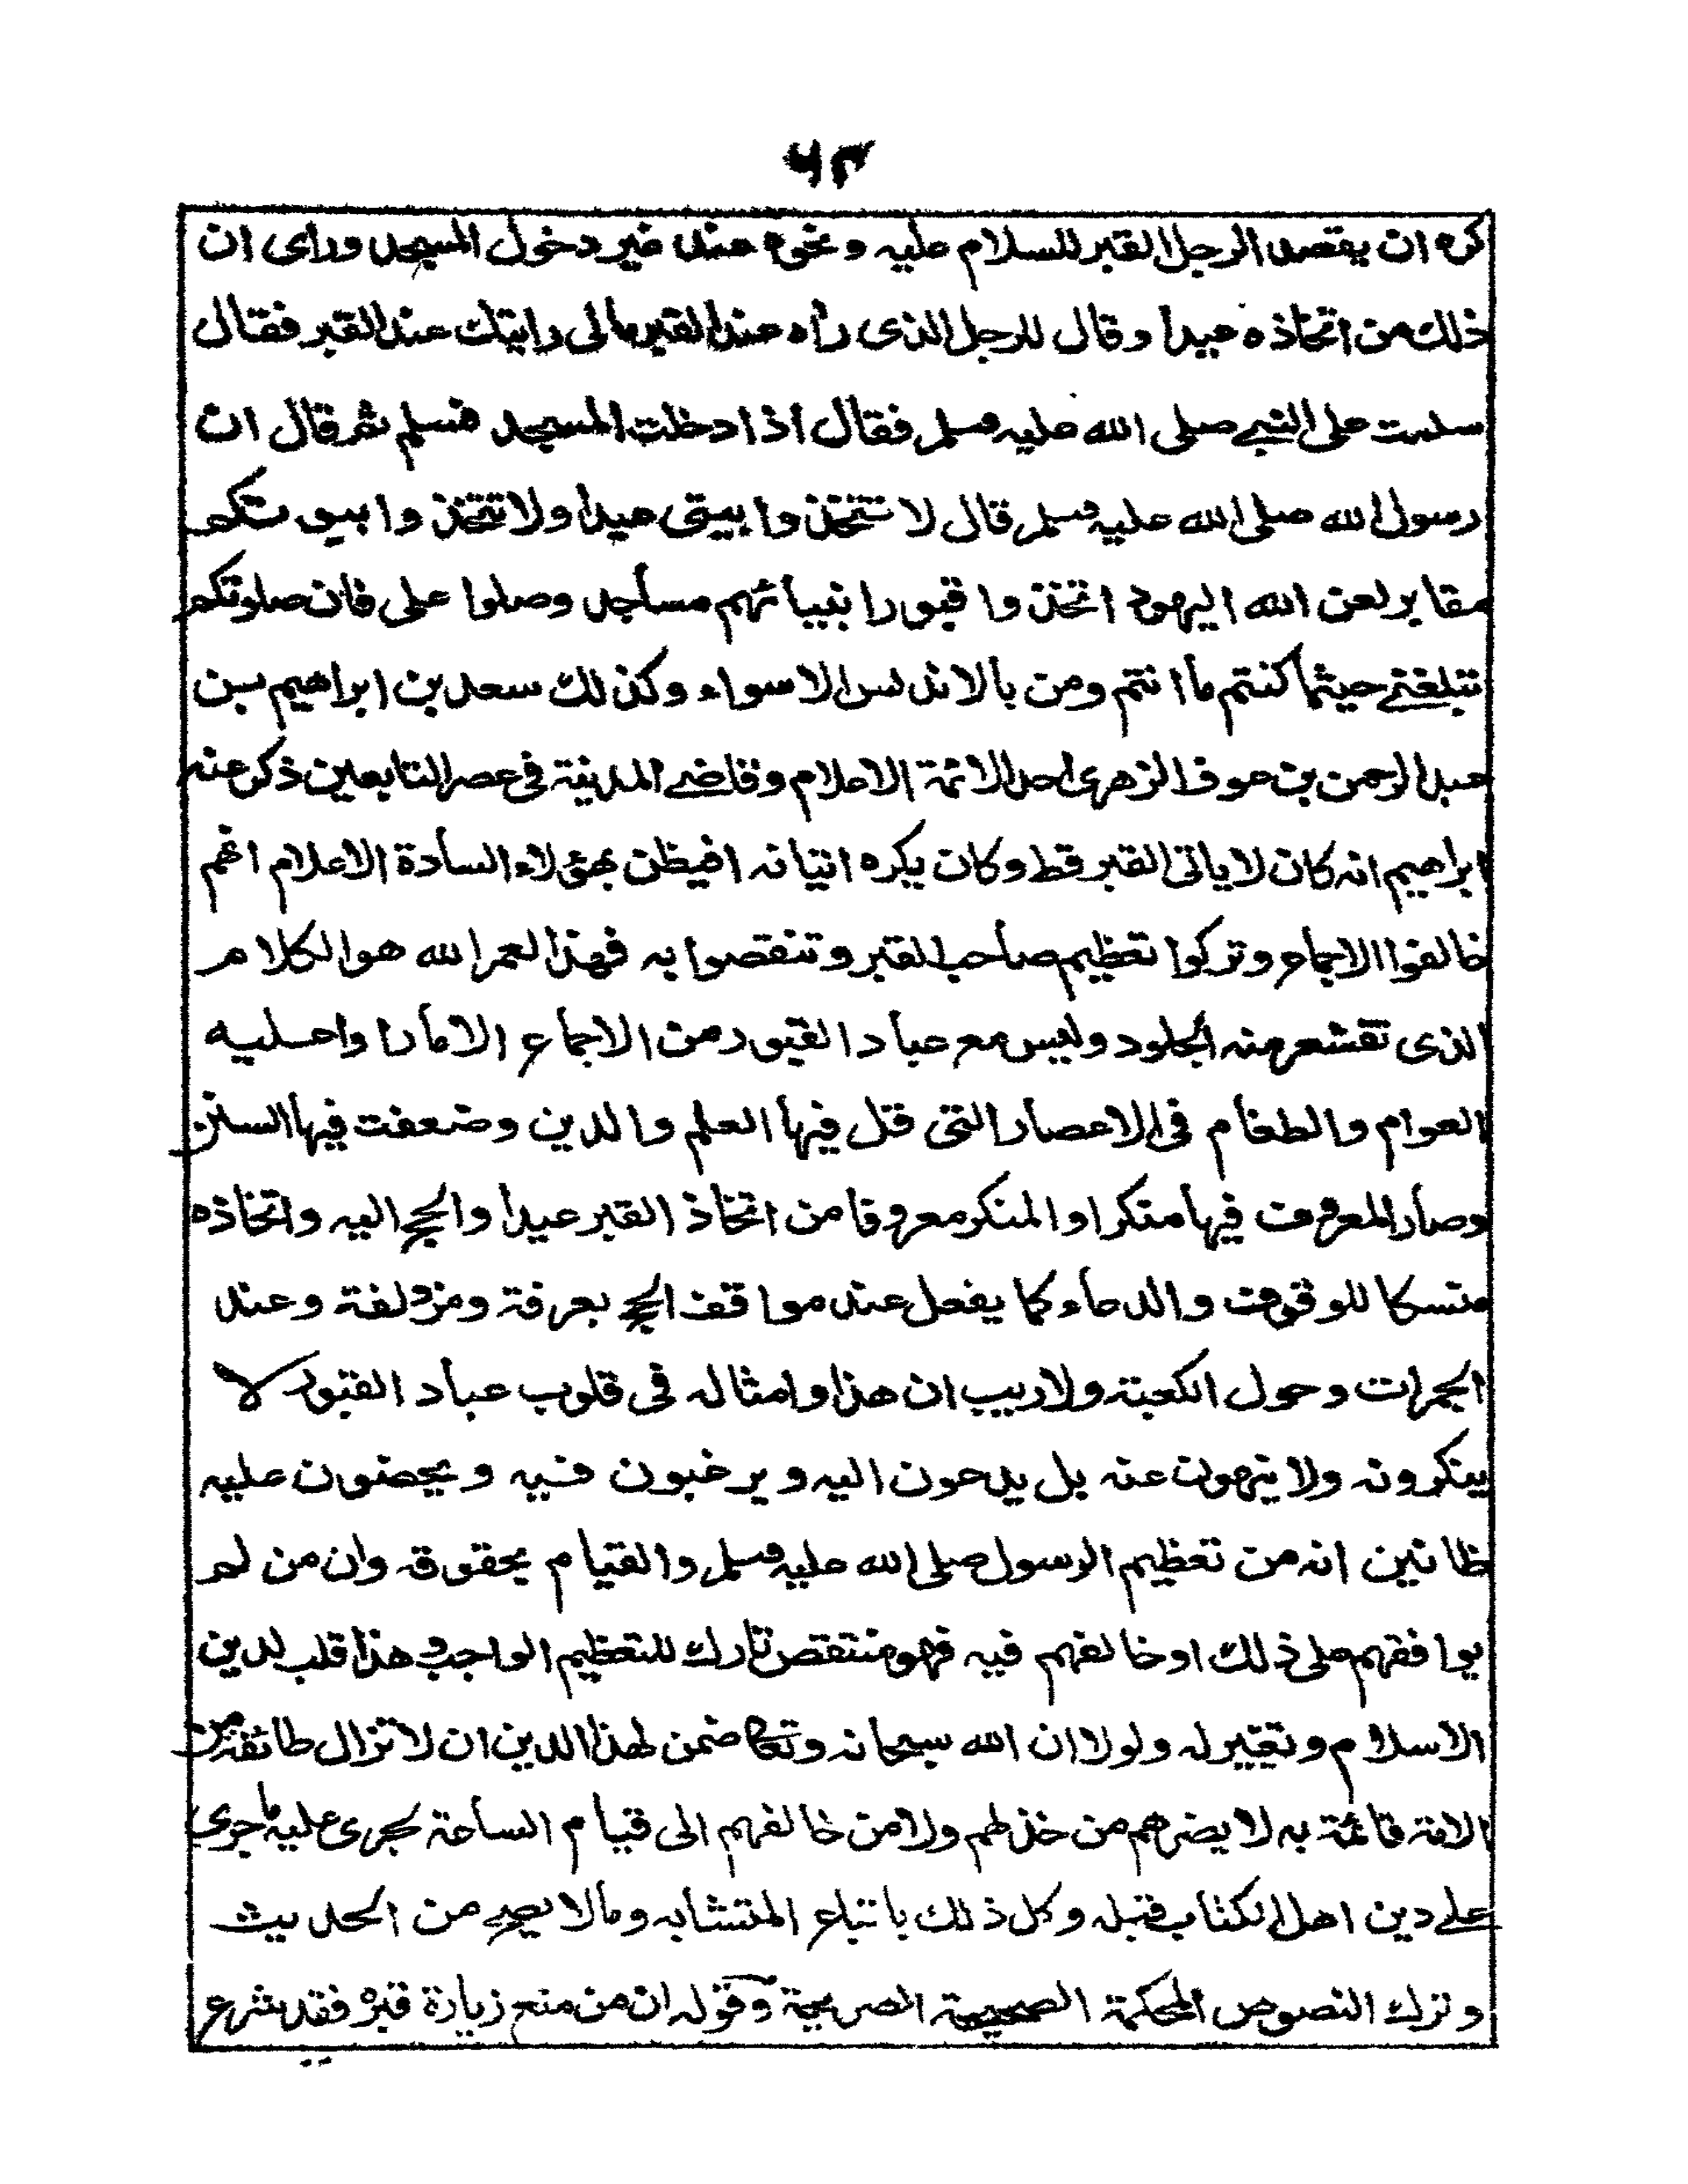 ٦٣
كره ان يقصد الرجل القبر للسلام عليه ونحوه عند غير دخول المسجد وراى ان
ذلك من اتخاذه عيدا وقال للرجل الذى رأه عند القبر مالى رايتك عند القبر فقال
سلمت على النبي صلى الله عليه وسلم فقال اذا دخلت المسجد فسلم ثم قال ان
رسول الله صلى الله عليه وسلم قال لا تتخذوا بيتى عيدا ولا تتخذوا بيوتكم
مقابر لعن الله اليهود اتخذوا قبور انبيائهم مساجد وصلوا على فان صلوتكم
تبلغنى حيثما كنتم ما انتم ومن بالاندلس الا سواء وكذلك سعد بن ابراهيم بن
عبد الرحمن بن عوف الزهرى احد الائمة الاعلام وقاضى المدينة فى عصر التابعين ذكر عنه
ابراهيم انه كان لا ياتى القبر قط وكان يكره اتيانه افيظن بهؤلاء السادة الاعلام انهم
خالفوا الاجماع وتركوا تعظيم صاحب القبر وتنقصوا به فهذا لعمر الله هو الكلام
الذى تقشعر منه الجلود وليس مع عباد القبور من الاجماع الا ما راوا عليه
العوام والطغام فى الاعصار التى قل فيها العلم والدين وضعفت فيها السنن
وصار المعروف فيها منكرا والمنكر معروفا من اتخاذ القبر عيدا والحج اليه واتخاذه
منسكا للوقوف والدعاء كما يفعل عند مواقف الحج بعرفة ومزدلفة وعند
الجمرات وحول الكعبة ولا ريب ان هذا وامثاله فى قلوب عباد القبور لا
ينكرونه ولا ينهون عنه بل يدعون اليه ويرغبون فيه ويحضون عليه
ظانين انه من تعظيم الرسول صلى الله عليه وسلم والقيام بحقوقه وان من لم
يوافقهم على ذلك او خالفهم فيه فهو منتقص تارك للتعظيم الواجب وهذا قلب لدين
الاسلام وتغيير له ولولا ان الله سبحانه وتعا ضمن لهذا الدين ان لا تزال طائفة من
الامة قائمة به لا يضرهم من خذلهم ولا من خالفهم الى قيام الساعة لجرى عليه ما جرى
على دين اهل الكتاب قبله وكل ذلك باتباع المتشابه وما لا يصح من الحديث
وترك النصوص المحكمة الصحيحة الصريحة وقوله ان من منع زيارة قبره فقد شرع